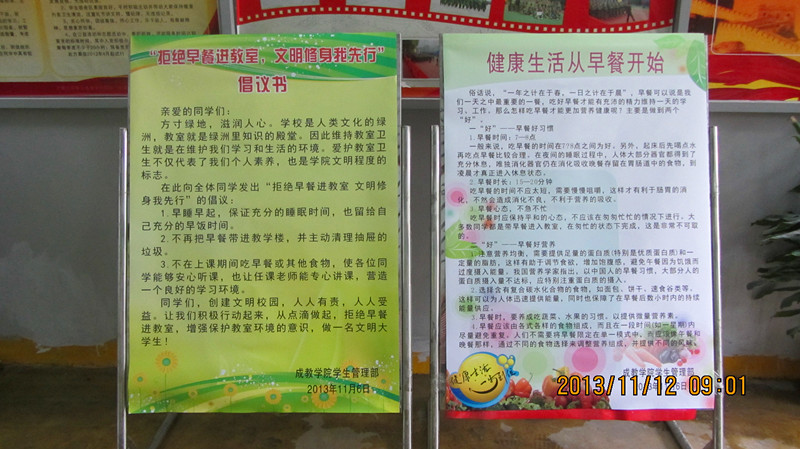 “拒绝早餐进教室，文明修身我先行”
倡议书
亲爱的同学们：
方寸绿地，滋润人心。学校是人类文化的绿
洲，教室就是绿洲里知识的殿堂。因此维持教室卫
生就是在维护我们学习和生活的环境。爱护教室卫
生不仅代表了我们个人素养，也是学院文明程度的
标志。
在此向全体同学发出“拒绝早餐进教室 文明修
身我先行”的倡议：
1.早睡早起，保证充分的睡眠时间，也留给自
己充分的早饭时间。
2.不再把早餐带进教学楼，并主动清理抽屉的
垃圾。
3.不在上课期间吃早餐或其他食物，使各位同
学能够安心听课，也让任课老师能专心讲课，营造
一个良好的学习环境。
同学们，创建文明校园，人人有责，人人受
益。让我们积极行动起来，从点滴做起，拒绝早餐
进教室，增强保护教室环境的意识，做一名文明大
学生！
成教学院学生管理部
2013年11月6日
健康生活从早餐开始
俗话说，“一年之计在于春，一日之计在于晨”，早餐可以说是我
们一天之中最重要的一餐，吃好早餐才能有充沛的精力维持一天的学
习、工作。那么怎样吃早餐才能更加营养健康呢？主要是做到两个
“好”。
一“好”——早餐好习惯
1.早餐时间：7—8点
一般来说，吃早餐的时间在7?8点之间为好。另外，起床后先喝点水
再吃点早餐比较合理，在夜间的睡眠过程中，人体大部分器官都得到了
充分休息，唯独消化器官仍在消化吸收晚餐存留在胃肠道中的食物，到
凌晨才真正进入休息状态。
2.早餐时长：15—20分钟
吃早餐的时间不应太短，需要慢慢咀嚼，这样才有利于肠胃的消
化，不然会造成消化不良，不利于营养的吸收。
3.早餐心态，不急不忙
吃早餐时应保持平和的心态，不应该在匆匆忙忙的情况下进行。大
多数同学都是带早餐进入教室，在匆忙的状态下完成，这是非常不可取
的。
“好”——早餐好营养
1.注意营养均衡，需要提供足量的蛋白质(特别是优质蛋白质)和一
定量的脂肪，这样有助于调节食欲，增加饱腹感，避免午餐因为饥饿而
过度摄入能量。我国营养学家指出，以中国人的早餐习惯，大部分人的
蛋白质摄入量不达标，应特别注重蛋白质的摄入。
2.选择含有复合碳水化合物的食物，如面包、饼干、速食谷类等。
这样可以为人体迅速提供能量，同时也保障了在早餐后数小时内的持续
能量供应。
3.早餐时，要养成吃蔬菜、水果的习惯，以提供微量营养素。
4.早餐应该由各式各样的食物组成，而且在一段时间(如一星期)内
尽量避免重复。人们不需要将早餐限定在单一模式中，而应该像午餐和
晚餐那样，通过不同的食物选择来调整营养组成，并提供不同的风味。
健康生活
成教学院学生管理部
2013/11/12 09:01